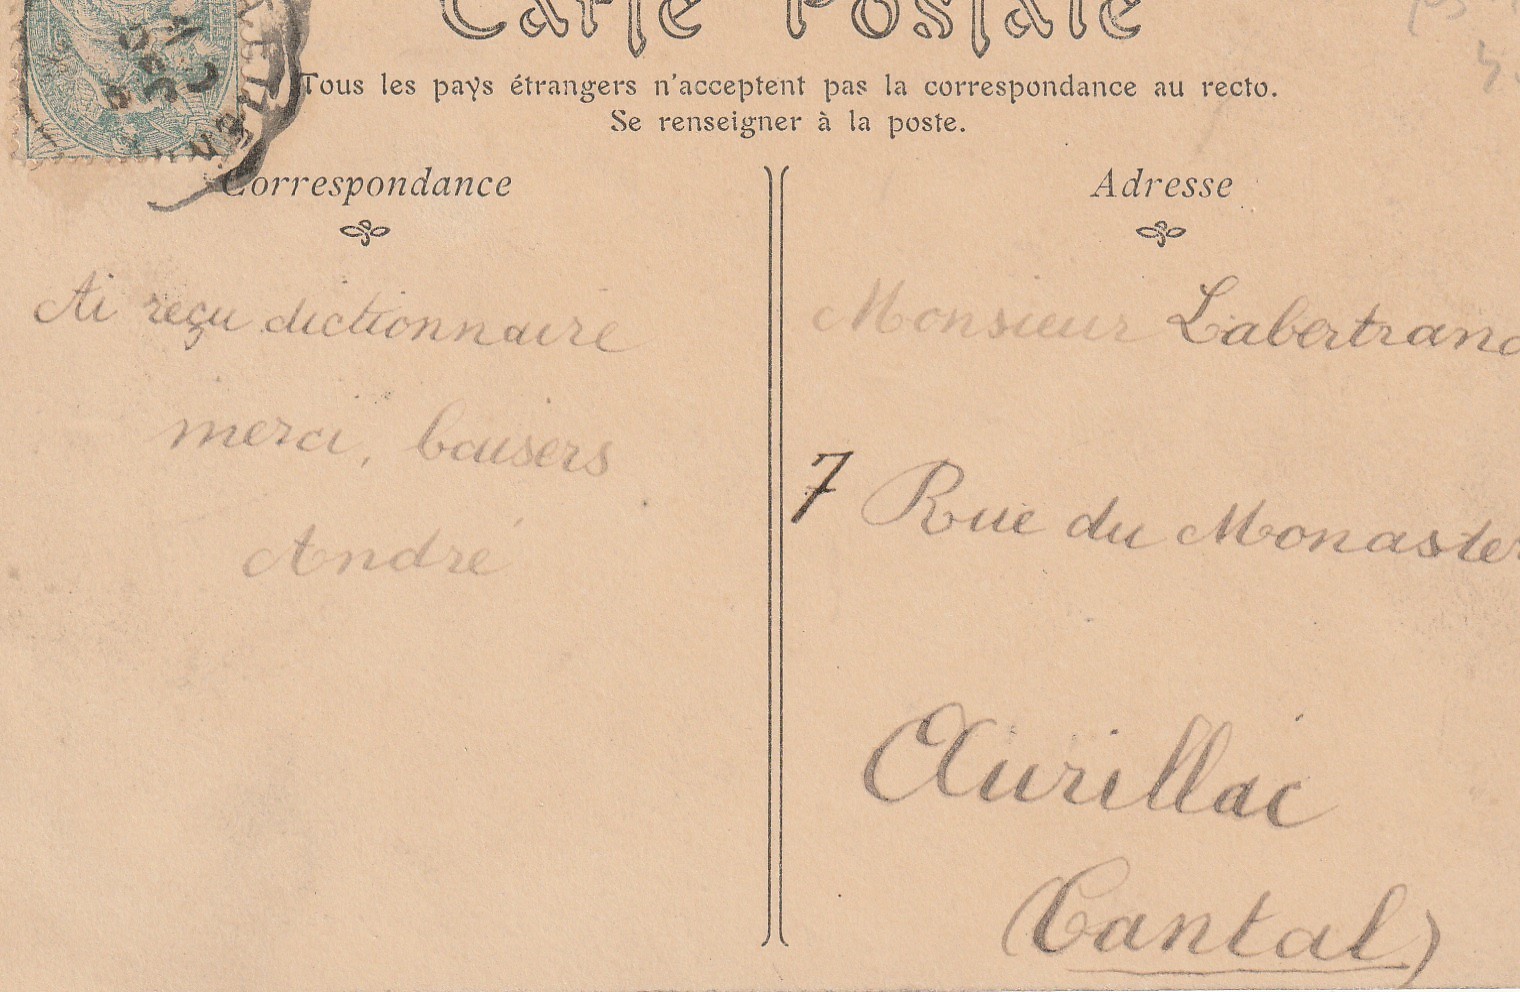 Carte Postale
Tous les pays étrangers n'acceptent pas la correspondance au recto.
Se renseigner à la poste.
Correspondance
Adresse
Ai reçu dictionnaire
merci, baisers
André
Monsieur Labertrand
7 Rue du Monaster
Aurillac
(Cantal)